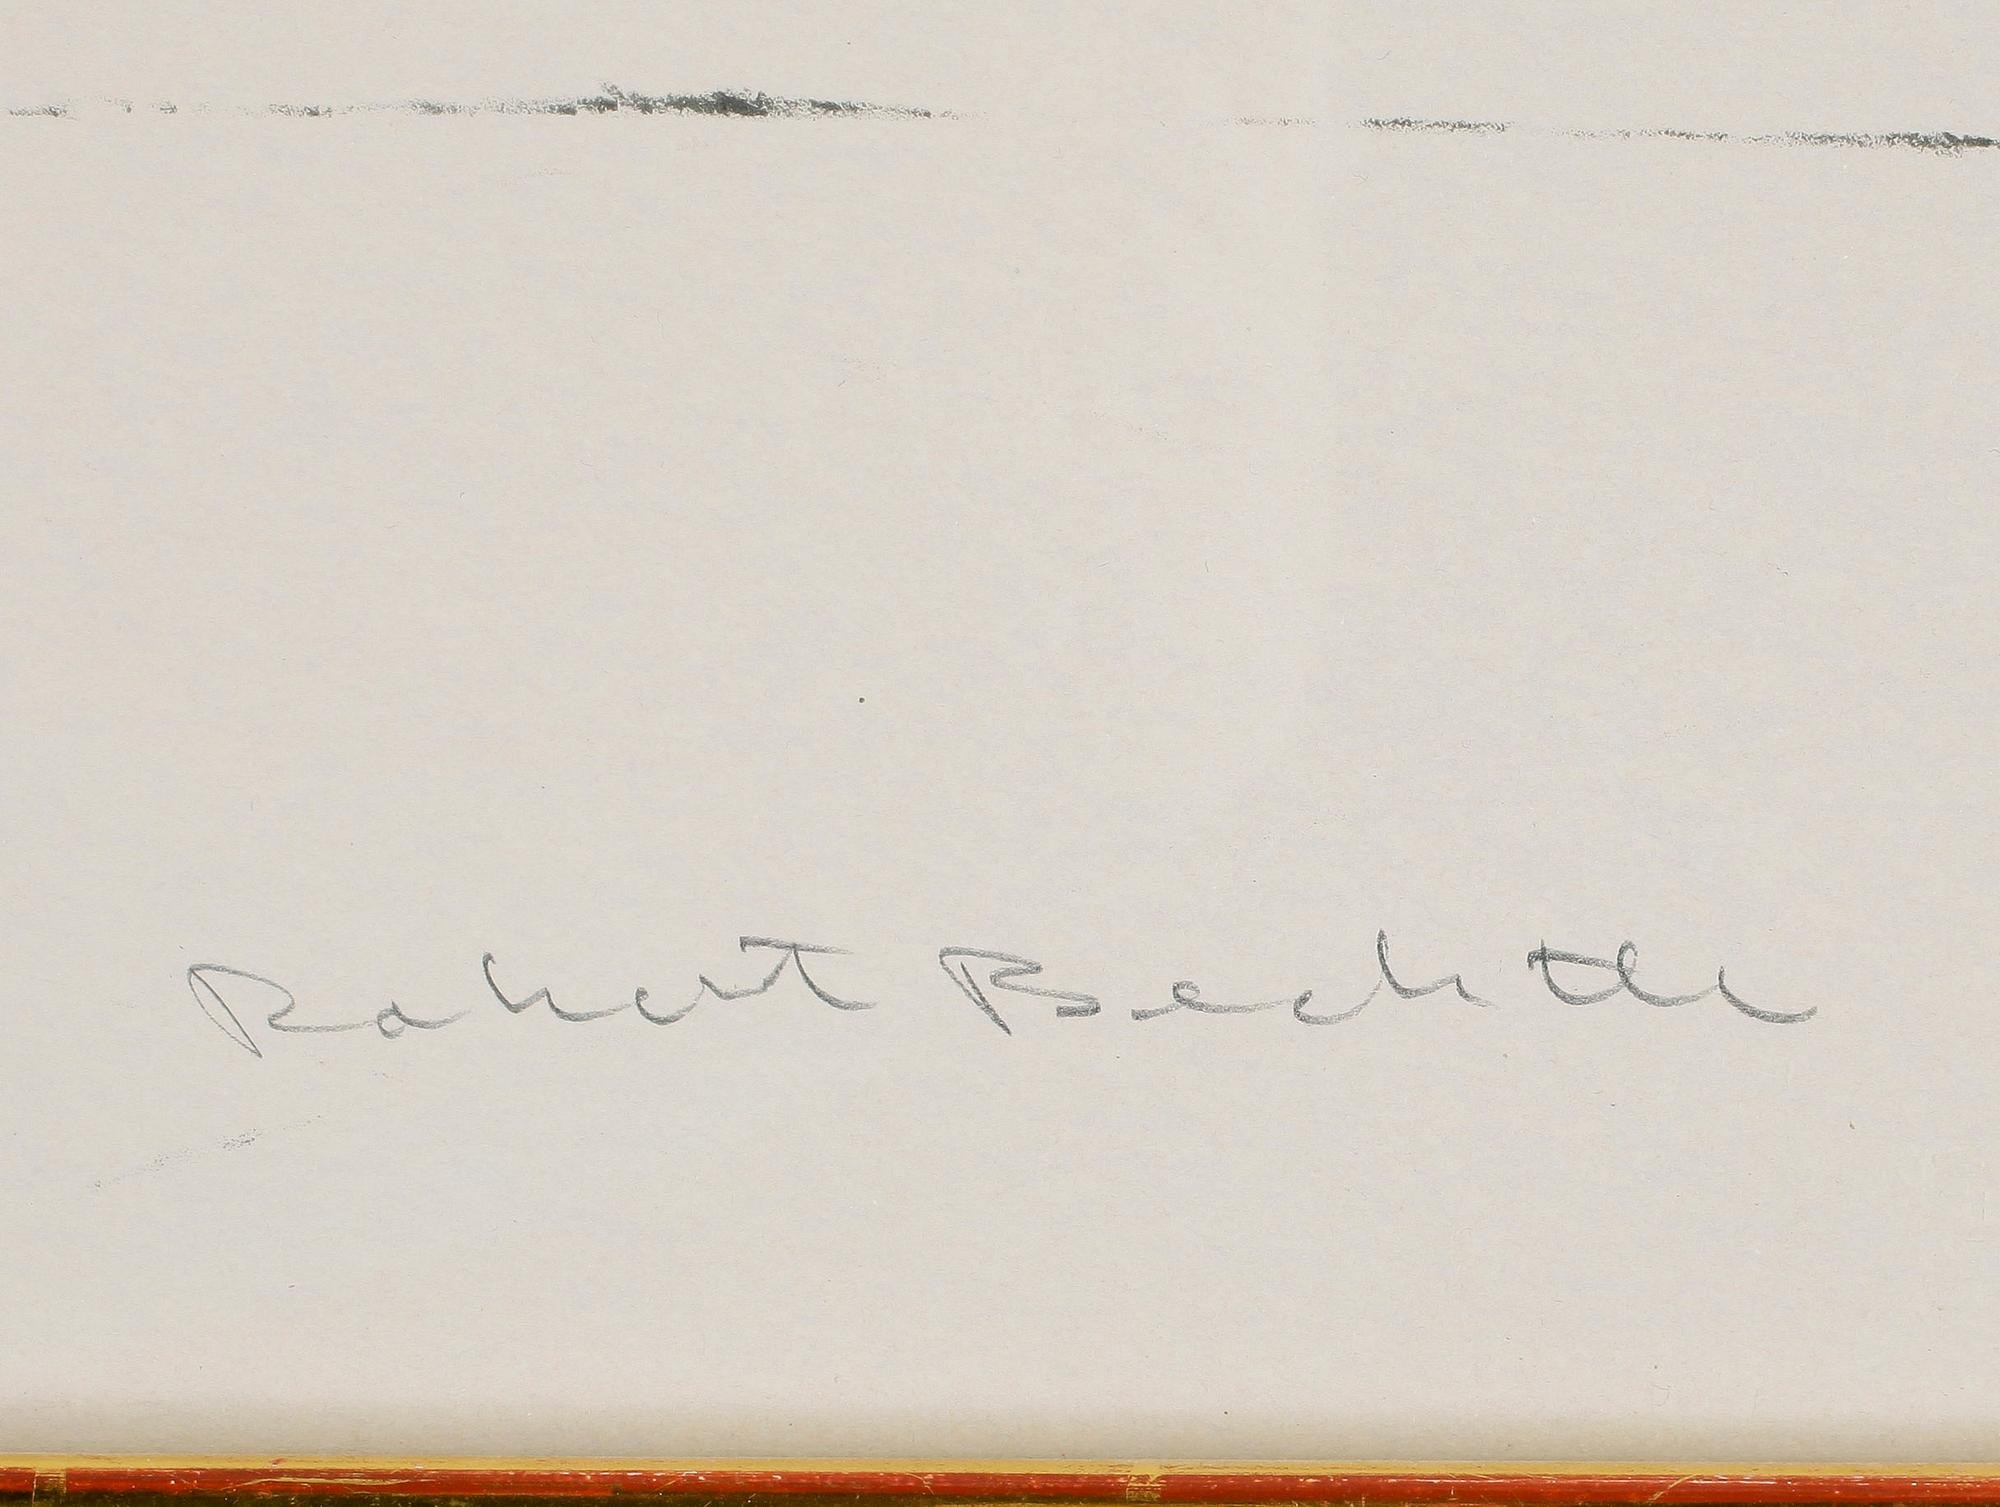 Robert Bechtle